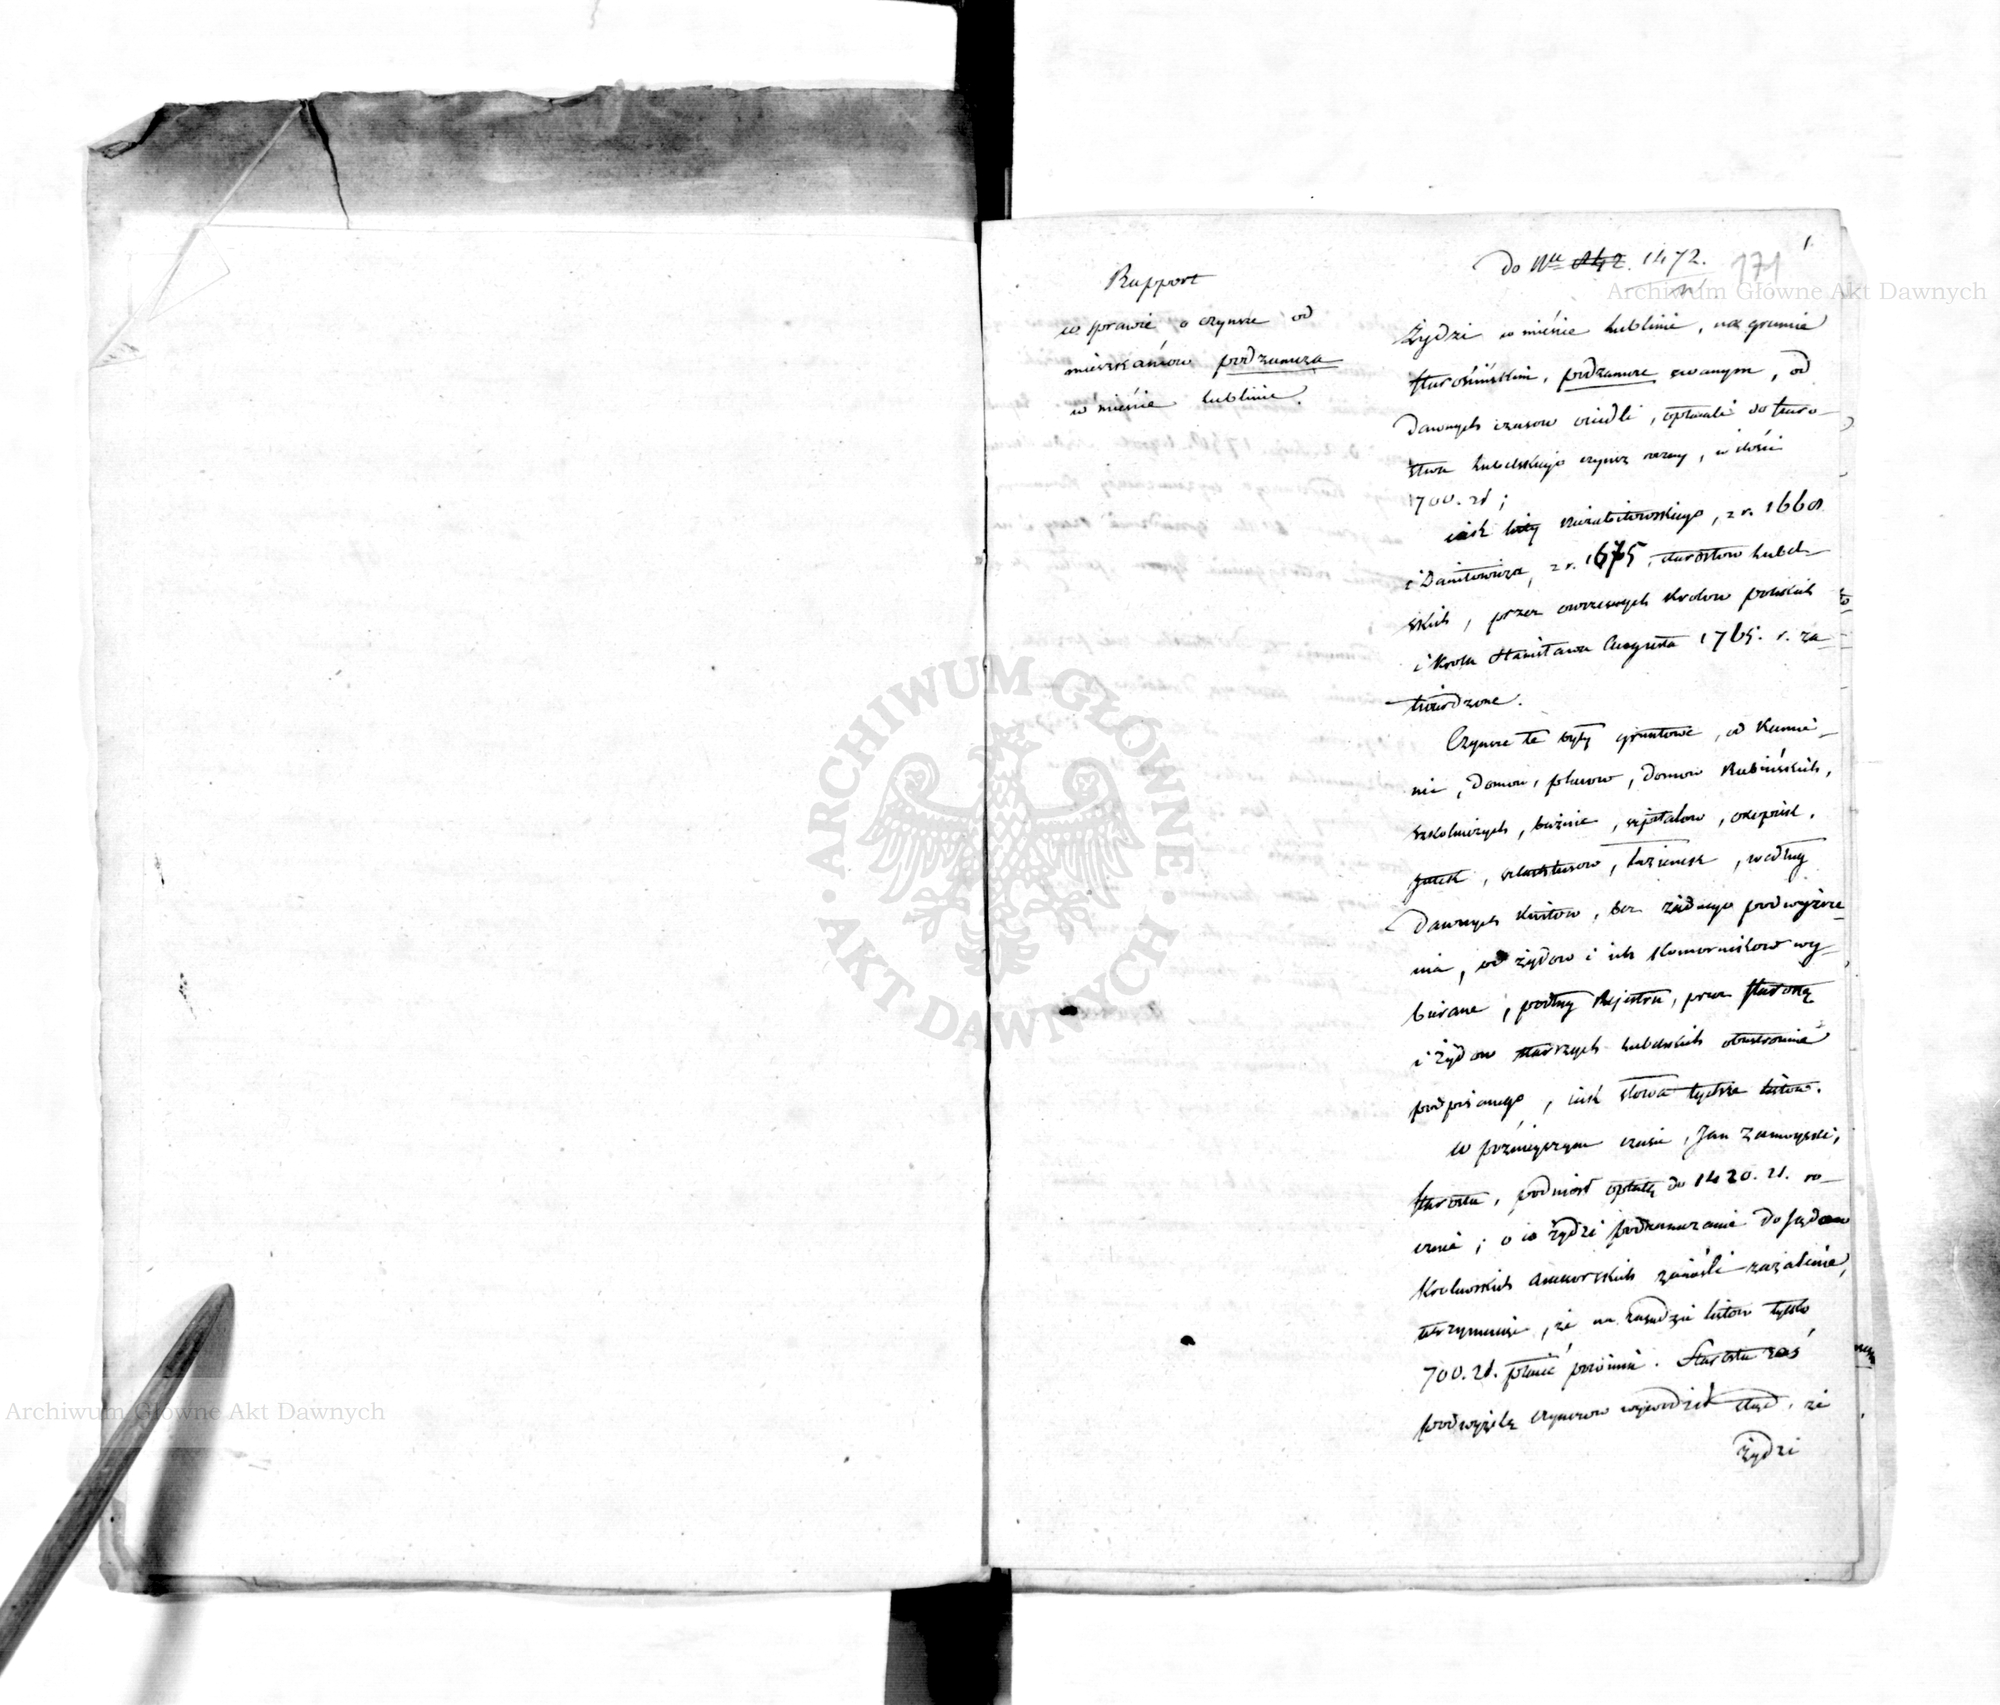 Rapport
w sprawie o czynsze od
mieszkańcow podzamcza
w mieście Lublinie.
Do Nru 1472.
171
1
Żydzi w mieście Lublinie, na gruncie
Starościńskim, podzamcze zwanym, od
dawnych czasow osiedli, opłacali do Staro-
stwa Lubelskiego czynsz roczny, w ilości
1700. zł;
iak listy z r. 1668
i Daniłowicza, z r. 1675, starostow Lubel-
skich, przez owczesnych Krolow polskich
i Krola Stanisława Augusta 1765. r. za-
twierdzone.
Czynsze te były gruntowe, od Kamie-
nic, Domow, placow, domow Rabińskich,
szkolniczych, bożnic, szpitalow, okopisk,
jatek, szlachtuzow, łazienek, według
dawnych kwitow, bez żadnego podwyższe-
nia, od żydow i ich Komornikow wy-
bierane, podług Rejestru, przez Starostę
i Żydow starszych Lubelskich obustronnie
podpisanego, iak słowa tychże listow.
W poźnieyszym czasie, Jan Zamoyski,
Starosta, podniosł opłatę do 1420. zł. ro-
cznie; o co Żydzi podzamczanie do Sądow
Krolewskich Assessorskich zanieśli zażalenie,
utrzymuiąc, że na zasadzie listow tylko
700. zł. płacić powinni. Starosta zaś
podwyżkę czynszow wywodził stąd, że
żydzi
Archiwum Główne Akt Dawnych
ARCHIWUM GŁÓWNE
AKT DAWNYCH
Archiwum Główne Akt Dawnych